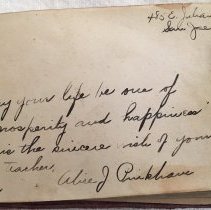 485 E. Julian
San Jose
ay your life be one of
rosperity and happiness
is the sincere wish of your
Teacher,
Alice J